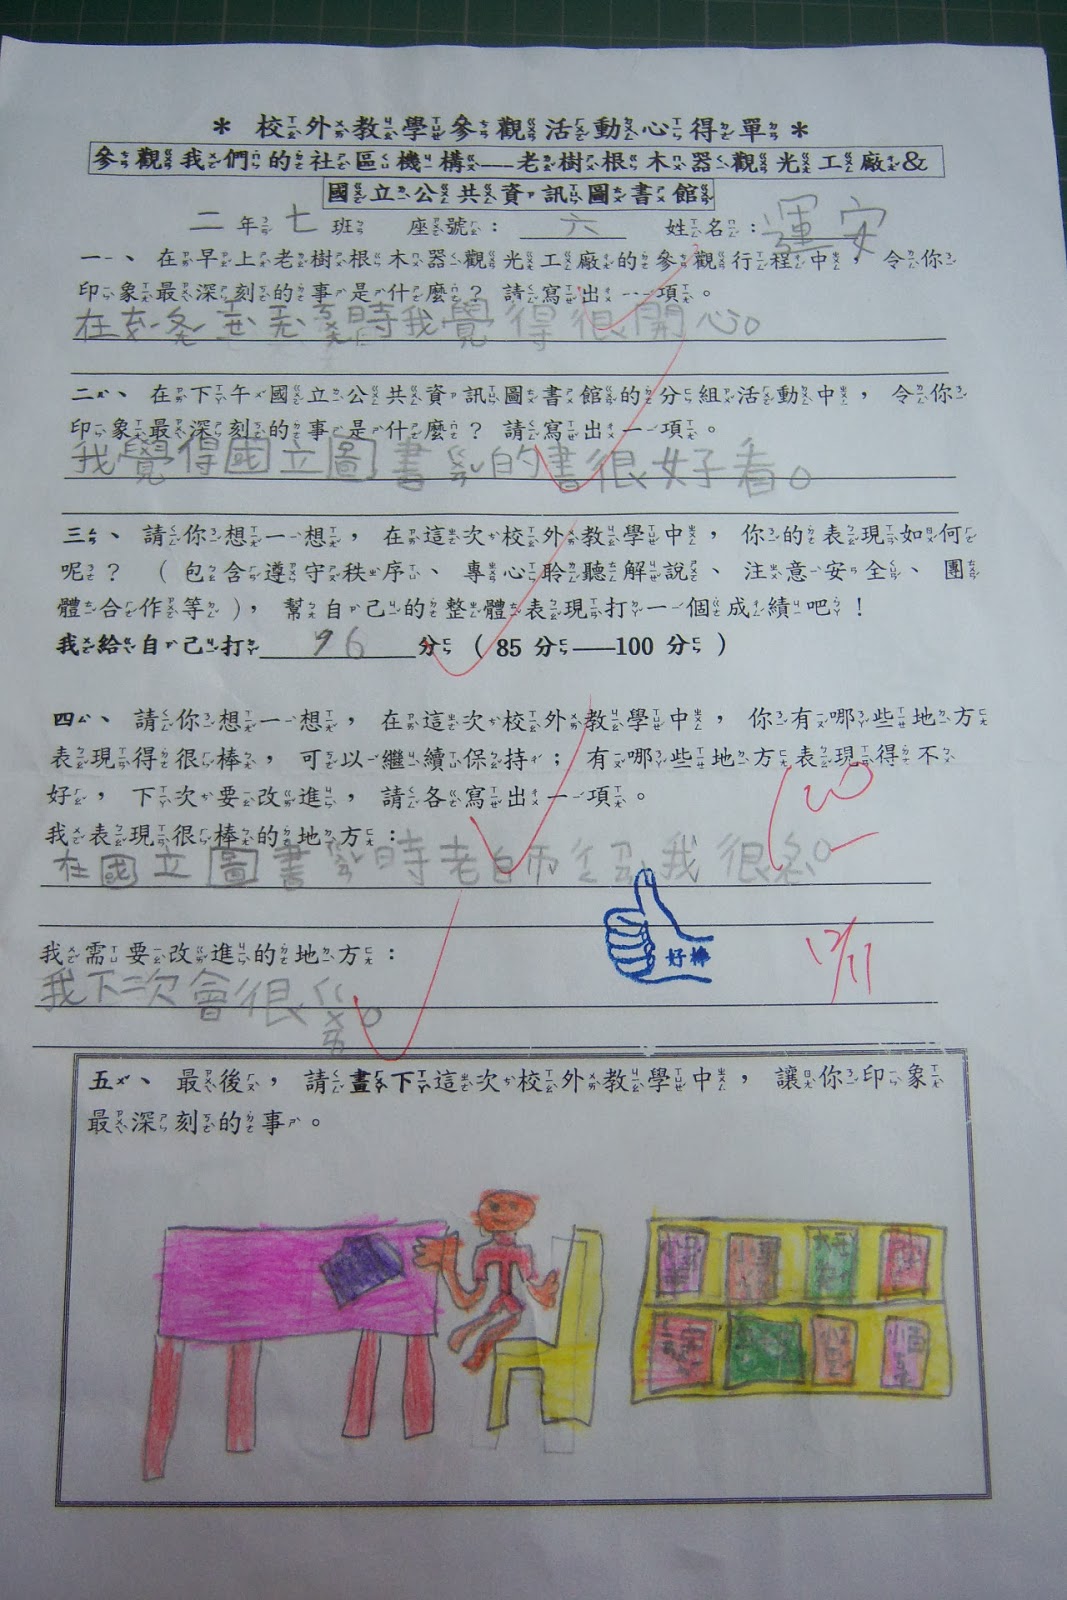 * 校外教學參觀活動心得單 *
參觀我們的社區機構——老樹根木器觀光工廠&
國立公共資訊圖書館
二年七班 座號：六 姓名：運安
一、在早上老樹根木器觀光工廠的參觀行程中，令你
印象最深刻的事是什麼？請寫出一項。
時我覺得很開心。
二、在下午國立公共資訊圖書館的分組活動中，令你
印象最深刻的事是什麼？請寫出一項。
我覺得國立圖書ㄍㄨㄢˇ的書很好看。
三、請你想一想，在這次校外教學中，你的表現如何
呢？（包含遵守秩序、專心聆聽解說、注意安全、團
體合作等），幫自己的整體表現打一個成績吧！
我給自己打 96 分（85 分——100 分）
四、請你想一想，在這次校外教學中，你有哪些地方
表現得很棒，可以繼續保持；有哪些地方表現得不
好，下次要改進，請各寫出一項。
我表現很棒的地方：
在國立圖書ㄍㄨㄢˇ時老師 我很
好棒
我需要改進的地方：
12/11
我下次會很ㄍㄨㄞ。
五、最後，請畫下這次校外教學中，讓你印象
最深刻的事。